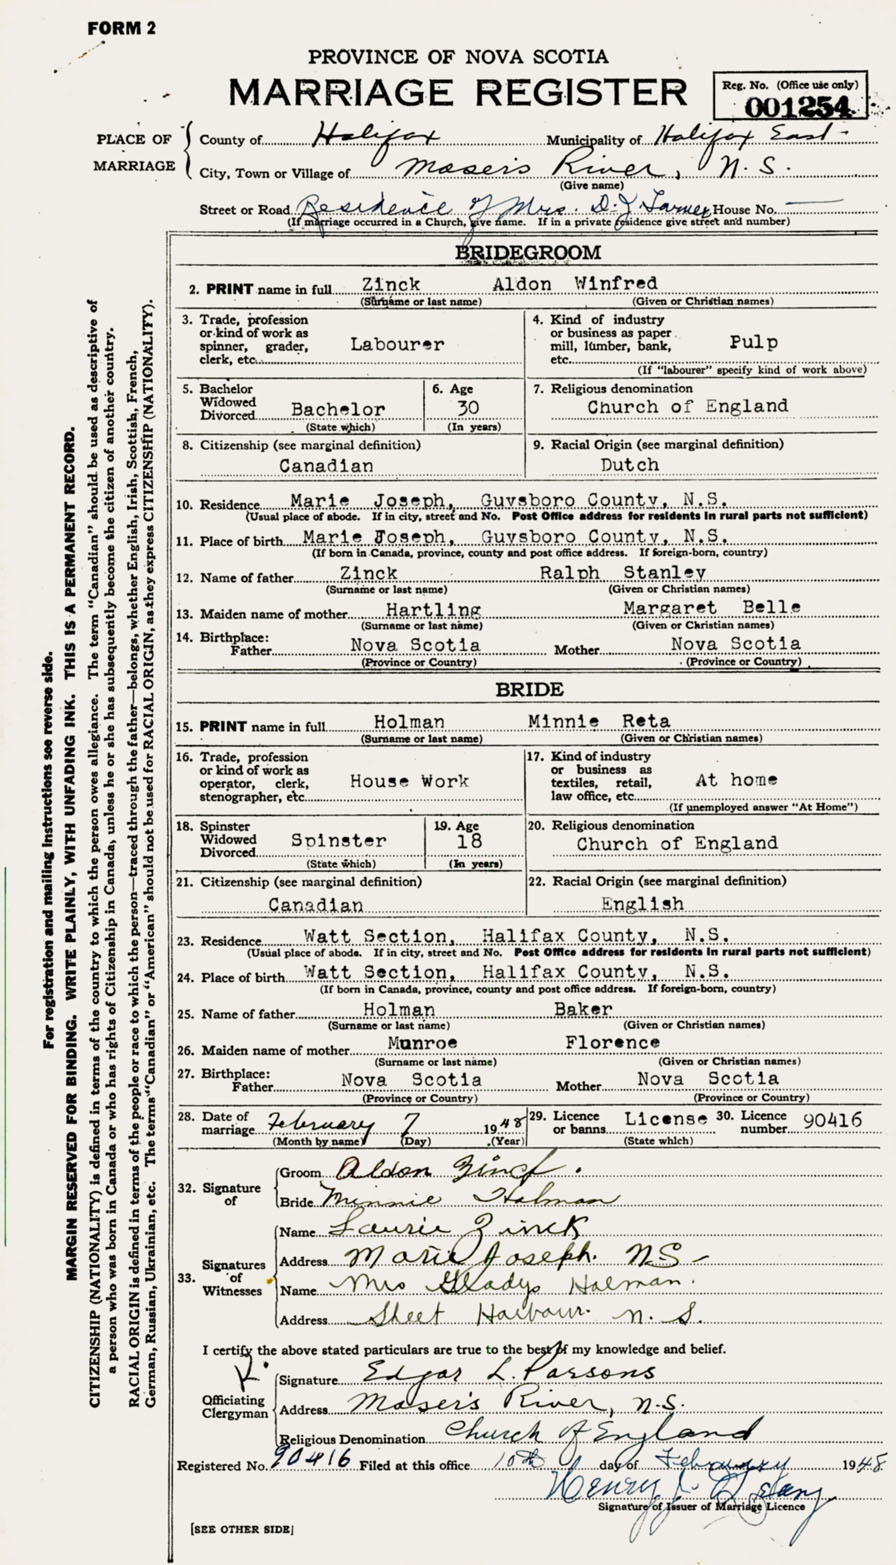 FORM 2
PROVINCE OF NOVA SCOTIA
MARRIAGE REGISTER
Reg. No. (Office use only)
001254
PLACE OF MARRIAGE
County of Halifax Municipality of Halifax East
City, Town or Village of Moser's River, N.S.
(Give name)
Street or Road Residence of Mrs. D. J. Turner House No. —
(If marriage occurred in a Church, give name. If in a private residence give street and number)
BRIDEGROOM
2. PRINT name in full Zinck Aldon Winfred
(Surname or last name) (Given or Christian names)
3. Trade, profession or kind of work as spinner, grader, clerk, etc. Labourer
4. Kind of industry or business as paper mill, lumber, bank, etc. Pulp
(If "labourer" specify kind of work above)
5. Bachelor Widowed Divorced Bachelor
(State which)
6. Age 30
(In years)
7. Religious denomination
Church of England
8. Citizenship (see marginal definition)
Canadian
9. Racial Origin (see marginal definition)
Dutch
10. Residence Marie Joseph, Guysboro County, N.S.
(Usual place of abode. If in city, street and No. Post Office address for residents in rural parts not sufficient)
11. Place of birth Marie Joseph, Guysboro County, N.S.
(If born in Canada, province, county and post office address. If foreign-born, country)
12. Name of father Zinck Ralph Stanley
(Surname or last name) (Given or Christian names)
13. Maiden name of mother Hartling Margaret Belle
(Surname or last name) (Given or Christian names)
14. Birthplace:
Father Nova Scotia Mother Nova Scotia
(Province or Country) (Province or Country)
BRIDE
15. PRINT name in full Holman Minnie Reta
(Surname or last name) (Given or Christian names)
16. Trade, profession or kind of work as operator, clerk, stenographer, etc. House Work
17. Kind of industry or business as textiles, retail, law office, etc. At home
(If unemployed answer "At Home")
18. Spinster Widowed Divorced Spinster
(State which)
19. Age 18
(In years)
20. Religious denomination
Church of England
21. Citizenship (see marginal definition)
Canadian
22. Racial Origin (see marginal definition)
English
23. Residence Watt Section, Halifax County, N.S.
(Usual place of abode. If in city, street and No. Post Office address for residents in rural parts not sufficient)
24. Place of birth Watt Section, Halifax County, N.S.
(If born in Canada, province, county and post office address. If foreign-born, country)
25. Name of father Holman Baker
(Surname or last name) (Given or Christian names)
26. Maiden name of mother Munroe Florence
(Surname or last name) (Given or Christian names)
27. Birthplace:
Father Nova Scotia Mother Nova Scotia
(Province or Country) (Province or Country)
28. Date of marriage February 7 1948
(Month by name) (Day) (Year)
29. Licence or banns License
(State which)
30. Licence number 90416
32. Signature of
Groom Aldon Zinck.
Bride Minnie Holman
33. Signatures of Witnesses
Name Laurie Zinck
Address Marie Joseph. NS
Name Mrs Gladys Holman.
Address Sheet Harbour. N. S.
I certify the above stated particulars are true to the best of my knowledge and belief.
Officiating Clergyman
Signature Edgar L. Parsons
Address Moser's River, N.S.
Religious Denomination Church of England
Registered No. 90416 Filed at this office 10th day of February 1948
Henry
Signature of Issuer of Marriage Licence
[SEE OTHER SIDE]
For registration and mailing instructions see reverse side.
MARGIN RESERVED FOR BINDING. WRITE PLAINLY, WITH UNFADING INK. THIS IS A PERMANENT RECORD.
CITIZENSHIP (NATIONALITY) is defined in terms of the country to which the person owes allegiance. The term "Canadian" should be used as descriptive of
a person who was born in Canada or who has rights of Citizenship in Canada, unless he or she has subsequently become the citizen of another country.
RACIAL ORIGIN is defined in terms of the people or race to which the person—traced through the father—belongs, whether English, Irish, Scottish, French,
German, Russian, Ukrainian, etc. The terms "Canadian" or "American" should not be used for RACIAL ORIGIN, as they express CITIZENSHIP (NATIONALITY).